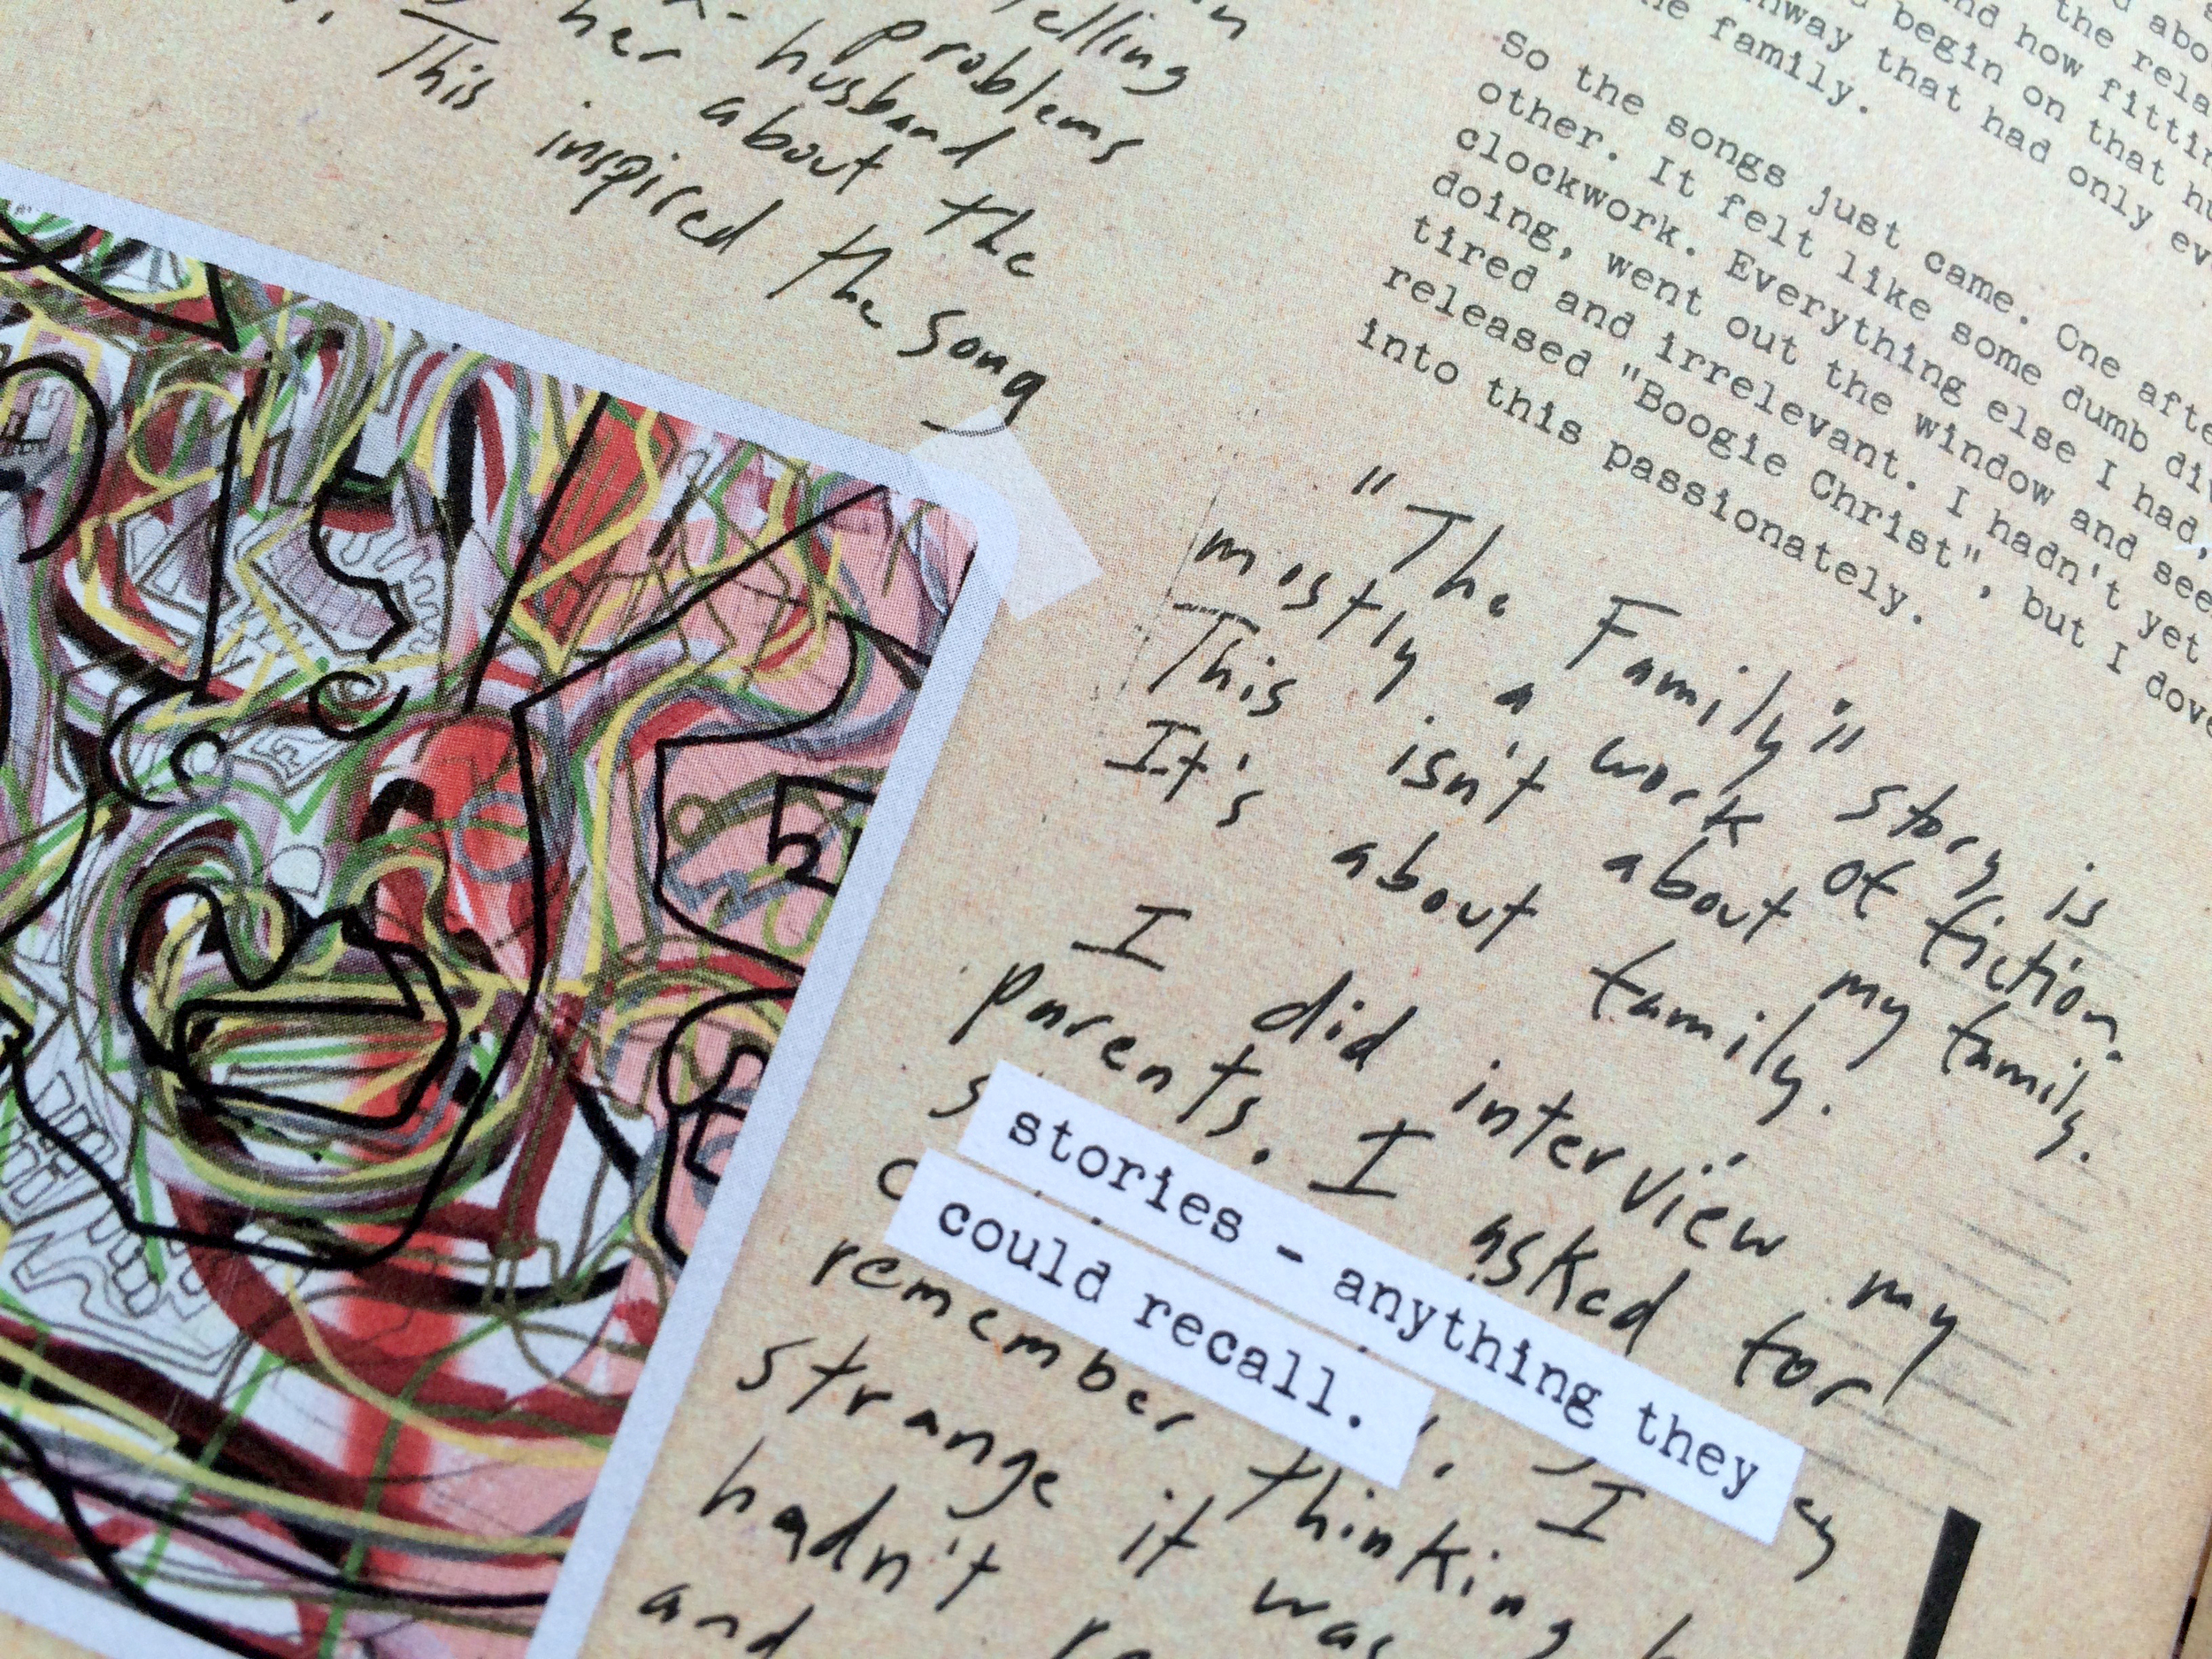 elling
problems
her husband
about the
This inspired the song
abo
the rela
and how fittin
begin on that hu
nway that had only ev
he family.
So the songs just came. One afte
other. It felt like some dumb di
clockwork. Everything else I had
doing, went out the window and see
tired and irrelevant. I hadn't yet
released "Boogie Christ", but I dove
into this passionately.
"The Family" story is
mostly a work of fiction.
This isn't about my family.
It's about family.
I did interview my
parents. I asked for
stories - anything they
could recall.
I
remember thinking
strange it was
hadn't
and